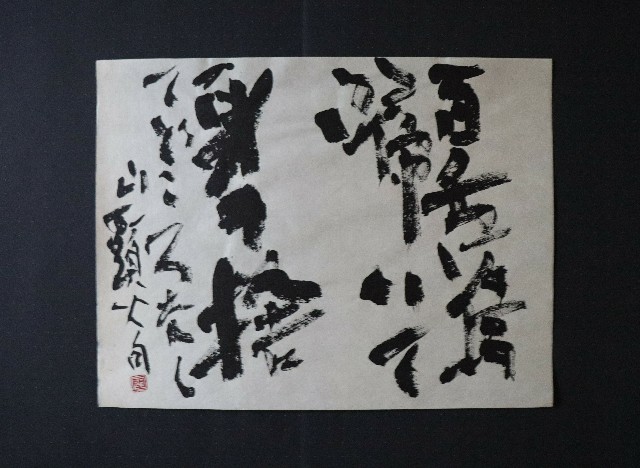 百舌鳥
啼いて
身の捨
てどころなし
山頭火句